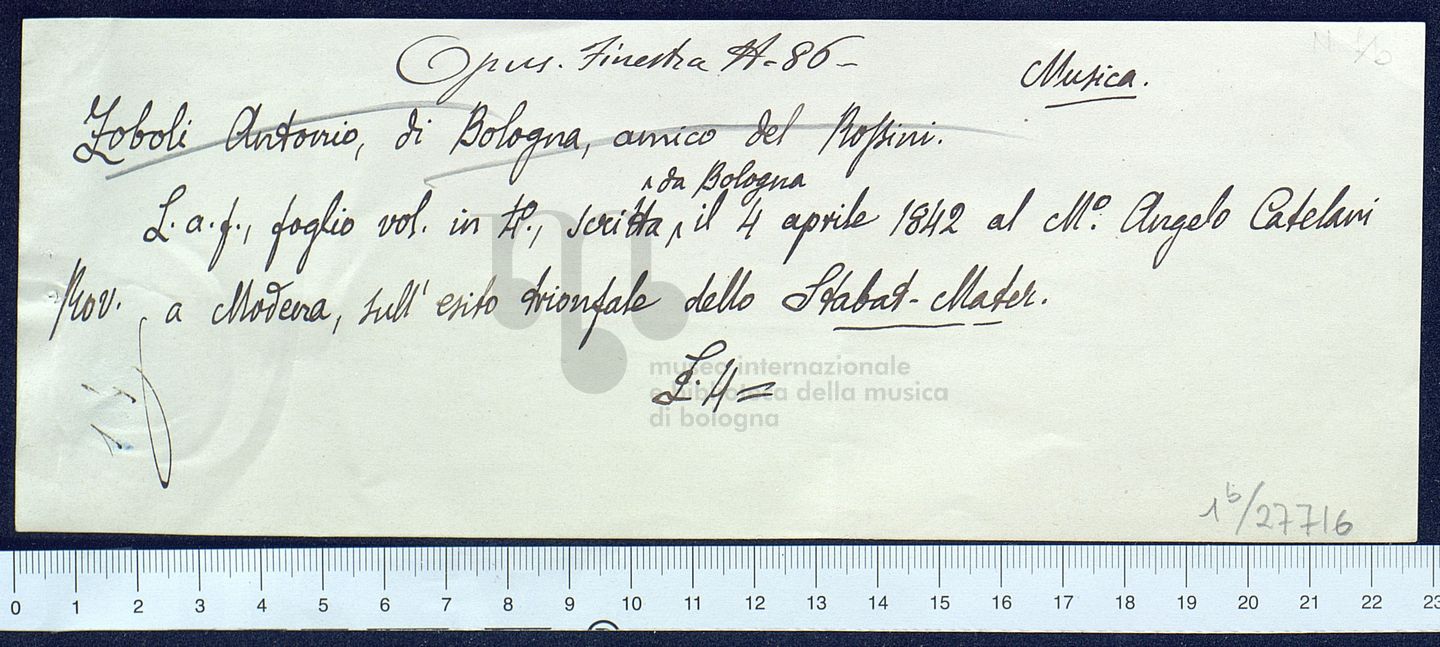 Opus. Finestra A-86-
Musica.
Zoboli Antonio, di Bologna, amico del Rossini.
da Bologna
L.a.f., foglio vol. in 4°., scritta, il 4 aprile 1842 al M.° Angelo Catelani
a Modena, sull' esito trionfale dello Stabat-Mater.
L. 4=
museo internazionale
e biblioteca della musica
di bologna
1b/27716
0 1 2 3 4 5 6 7 8 9 10 11 12 13 14 15 16 17 18 19 20 21 22 23